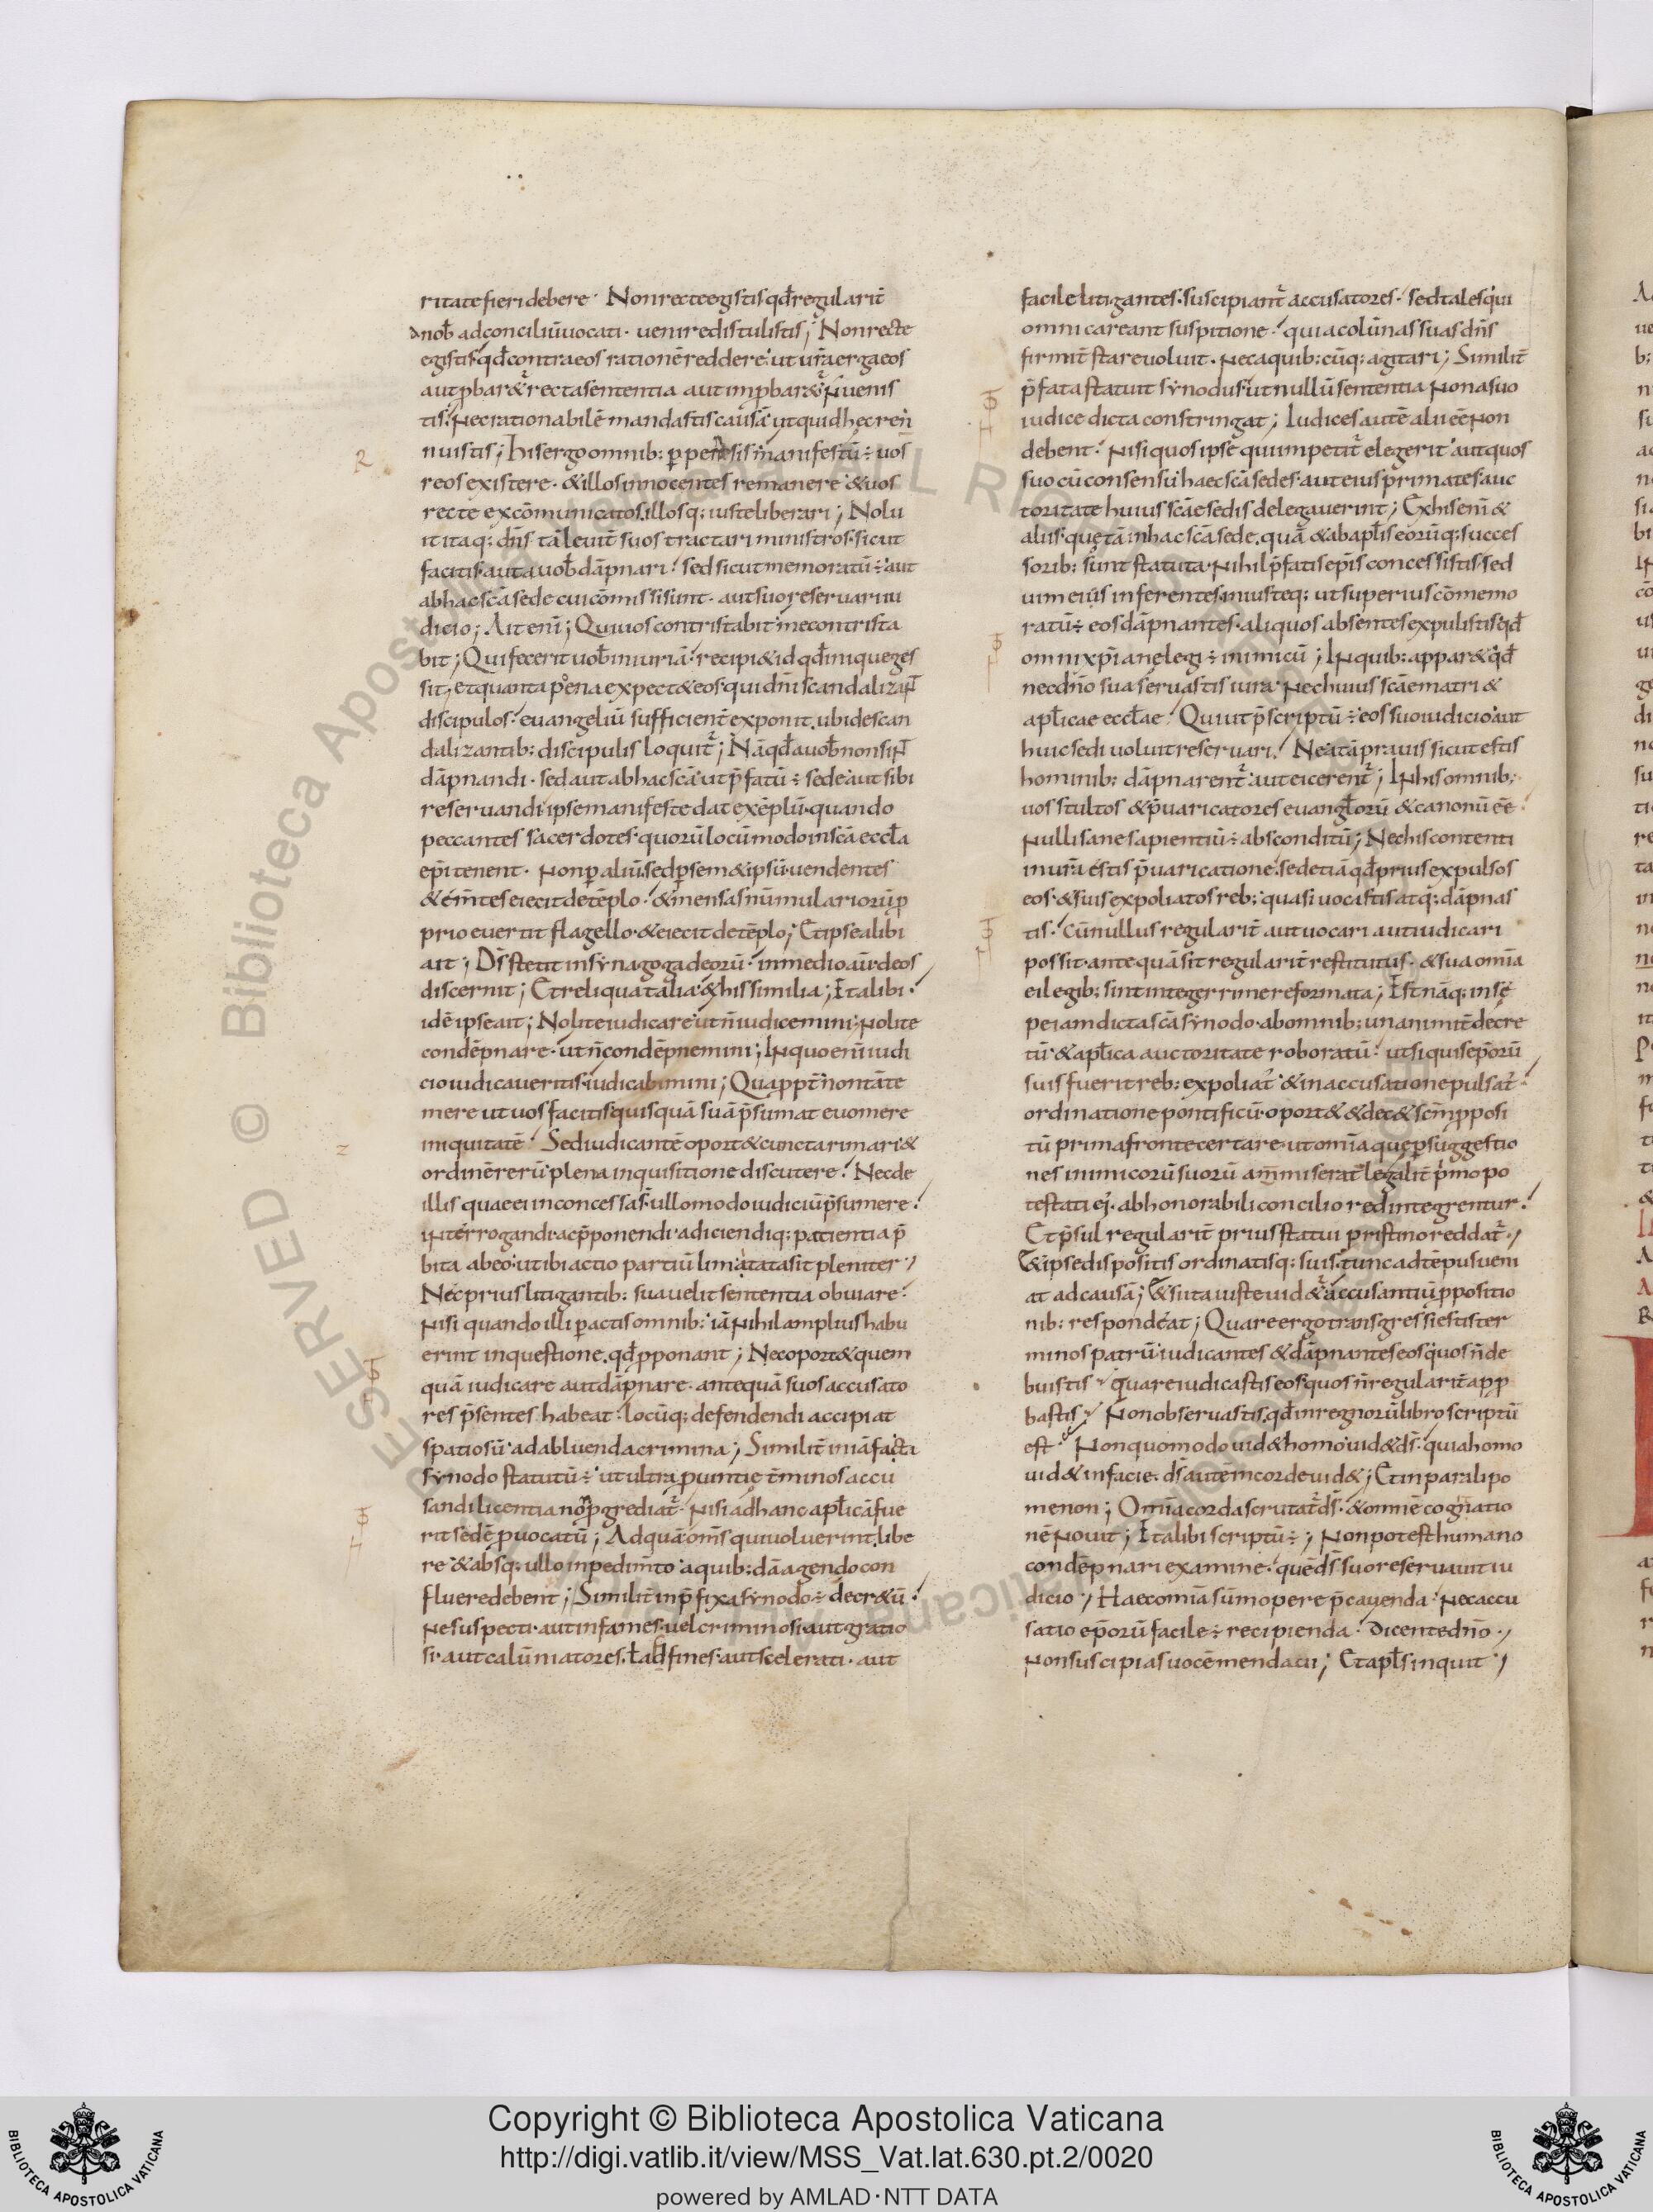 ritate fieri debere. Non recte egistis qđ regularit̄
a nob̄ ad conciliū uocati. uenire distulistis; Non recte
egistis qđ contra eos rationē reddere. ut ur̄a erga eos
aut ꝓbar& recta sententia aut inꝓbar& ñ uenis
tis. nec rationabilē mandastis causā ut quid hec reñ
nuistis; his ergo omnib: perpensis manifestū ÷ uos
reos existere. & illos innocentes remanere & uos
recte excōmunicatos. illosq: iuste liberari; Nolu
it itaq: dn̄s tā leuit̄ suos tractari ministros. sicut
facitis. aut a uob̄ dāpnari. sed sicut memoratū ÷. aut
ab hac sc̄a sede cui cōmissi sunt. aut suo reseruari iu
dicio; Ait enī; Qui uos contristabit me contrista
bit; Qui fecerit uob̄ iniuriā. recipi& id qđ inique ges
sit; et quanta poena expect& eos. qui dn̄i scandalizant̄
discipulos. euangeliū sufficient̄ exponit. ubi de scan
dalizantib: discipulis loquit̄; Nā qđ a uob̄ non sint̄
dāpnandi. sed aut ab hac sc̄a ut p̄fatū ÷ sede. aut sibi
reseruandi. ipse manifeste dat exēplū. quando
peccantes sacerdotes. quorū locū modo in sc̄a eccl̄a
ep̄i tenent. non ꝑ aliū. sed ꝑ sem&ipsū. uendentes
& em̄tes eiecit de tēplo. & mensas nūmulariorū ꝓ
prio euertit flagello. & eiecit de tēplo; Et ipse alibi
ait; Ds̄ stetit in synagoga deorū. in medio aūt deos
discernit; Et reliqua talia. & his similia; It alibi.
idē ipse ait; Nolite iudicare ut n̄ iudicemini; nolite
condēpnare. ut n̄ condēpnemini; In quo enī iudi
cio iudicaueritis. iudicabimini; Quapropt̄ non tā te
mere ut uos facitis quisquā suā p̄sumat euomere
iniquitatē. Sed iudicantē oport& cuncta rimari. &
ordinē rerū plena inquisitione discutere. Nec de
illis quae ei inconcessa s̄. ullo modo iudiciū p̄sumere.
interrogandi ac p̄ponendi. adiciendiq: patientia p̄
bita ab eo. ut ibi actio partiū limatata sit pleniter;
Nec prius litigantib: sua uelit sententia obuiare.
Nisi quando illi peractis omnib: iā nihil amplius habu
erint in questione. qđ ꝓponant; Nec oport& quem
quā iudicare aut dāpnare. antequā suos accusato
res p̄sentes habeat. locūq: defendendi accipiat
spatiosū. ad abluenda crimina; Similit̄ in iā facta
synodo statutū ÷. ut ultra ꝓuintię t̄minos accu
sandi licentia non ꝓgrediat̄. nisi ad hanc apl̄icā fue
rit sedē ꝓuocatū; Ad quā om̄s qui uoluerint. libe
re & absq: ullo inpedim̄to. a quib: dā agendo con
fluere debent; Similit̄ in p̄fixa synodo ÷ decr&ū.
Ne suspecti. aut infames. uel criminosi. aut gratio
si. aut calūniatores. ł adfines. aut scelerati. aut
facile litigantes. suscipiant̄ accusatores. sed tales qui
omni careant suspitione. quia colūnas suas dn̄s
firmit̄ stare uoluit. nec a quib: cūq: agitari; Similit̄
p̄fata statuit synodus. ut nullū sententia non a suo
iudice dicta constringat; Iudices autē alii eē non
debent. nisi quos ipse qui inpetit̄ elegerit. aut quos
suo cū consensu haec sc̄a sedes. aut eius primates. auc
toritate huius sc̄ae sedis delegauerint; Ex his enī &
aliis. quę tā in hac sc̄a sede. quā & ab apl̄is eorūq: succes
sorib: sunt statuta. nihil p̄fatis ep̄is concessistis. sed
uim eius inferentes. iniusteq: ut superius cōmemo
ratū ÷ eos dāpnantes. aliquos absentes expulistis. qđ
omni xp̄ianę legi ÷ inimicū; In quib: appar& qđ
nec dn̄o sua seruastis iura. nec huius sc̄ae matri &
apl̄icae eccl̄ae. Qui ut p̄scriptū ÷. eos suo iudicio. aut
huic sedi uoluit reseruari. Ne a tā prauis sicut estis
hominib: dāpnarent̄. aut eicerent̄; In his omnib:
uos stultos & p̄uaricatores euangl̄iorū & canonū eē.
Nulli sane sapientiū ÷ absconditū; Nec his contenti
in ur̄a estis p̄uaricatione. sed etiā qđ prius expulsos
eos. & suis expoliatos reb: quasi uocastis atq: dāpnas
tis. Cū nullus regularit̄ aut uocari aut iudicari
possit. antequā sit regularit̄ restitutus. & sua omīa
ei legib: sint integerrime reformata; Est nāq: in sę
pe iam dicta sc̄a synodo. ab omnib: unanimit̄ decre
tū. & apl̄ica auctoritate roboratū. ut si quis ep̄orū
suis fuerit reb: expoliat̄. & in accusatione pulsat̄.
ordinatione pontificū. oport& & dec& sc̄m ꝓposi
tū prima fronte certare. ut omīa que ꝑ suggestio
nes inimicorū suorū am̄iserat. legalit̄ p̄mo po
testati ej. ab honorabili concilio redintegrentur.
Et p̄sul regularit̄ prius statui pristino reddat̄;
& ipse dispositis ordinatisq: suis. tunc ad tēpus ueni
at ad causā; & si ita iuste uid&̄ accusantiū ꝓpositio
nib: respondeat; Quare ergo transgressi estis ter
minos patrū. iudicantes & dāpnantes eos quos n̄ de
buistis. quare iudicastis eos quos n̄ regularit̄ apꝓ
bastis. Non obseruastis. qđ in regnorū libro scriptū
est. Non quomodo uid& homo. uid& ds̄. quia homo
uid& in facie. ds̄ autē in corde uid&; Et in paralipo
menon; Omīa corda scrutat̄ ds̄. & omnē cognatio
nē nouit; It alibi scriptū ÷; Non potest humano
condēpnari examine. quē ds̄ suo reseruauit iu
dicio; Haec omīa sūmopere p̄cauenda. nec accu
satio ep̄orū facile ÷ recipienda. dicente dn̄o;
Non suscipias uocē mendacii; Et apl̄s inquit;
Copyright © Biblioteca Apostolica Vaticana
http://digi.vatlib.it/view/MSS_Vat.lat.630.pt.2/0020
powered by AMLAD·NTT DATA
BIBLIOTECA APOSTOLICA VATICANA
BIBLIOTECA APOSTOLICA VATICANA